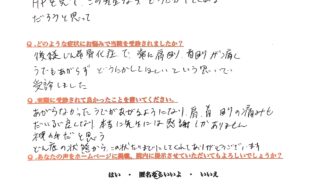 HPを見て、この先生なら どうにかしてくれる
だろうと思って
Q.どのような症状にお悩みで当院を受診されましたか？
後縦じん帯骨化症で、常に肩周り 首周りが痛く
うでもあがらず どうにかしてほしい という思いで
受診しました
Q.実際に受診されて良かったことを書いてください。
あがらなかったうでがあがるようになり、肩 首 周りの痛みも
だいぶ楽になり 本当に先生には感謝しかありません
どん底の状態から、この状たいまでにしてくれてありがとうございます
Q.あなたの声をホームページに掲載、院内に掲示させていただいてもよろしいでしょうか？
はい ・ 匿名ならいいよ ・ いいえ